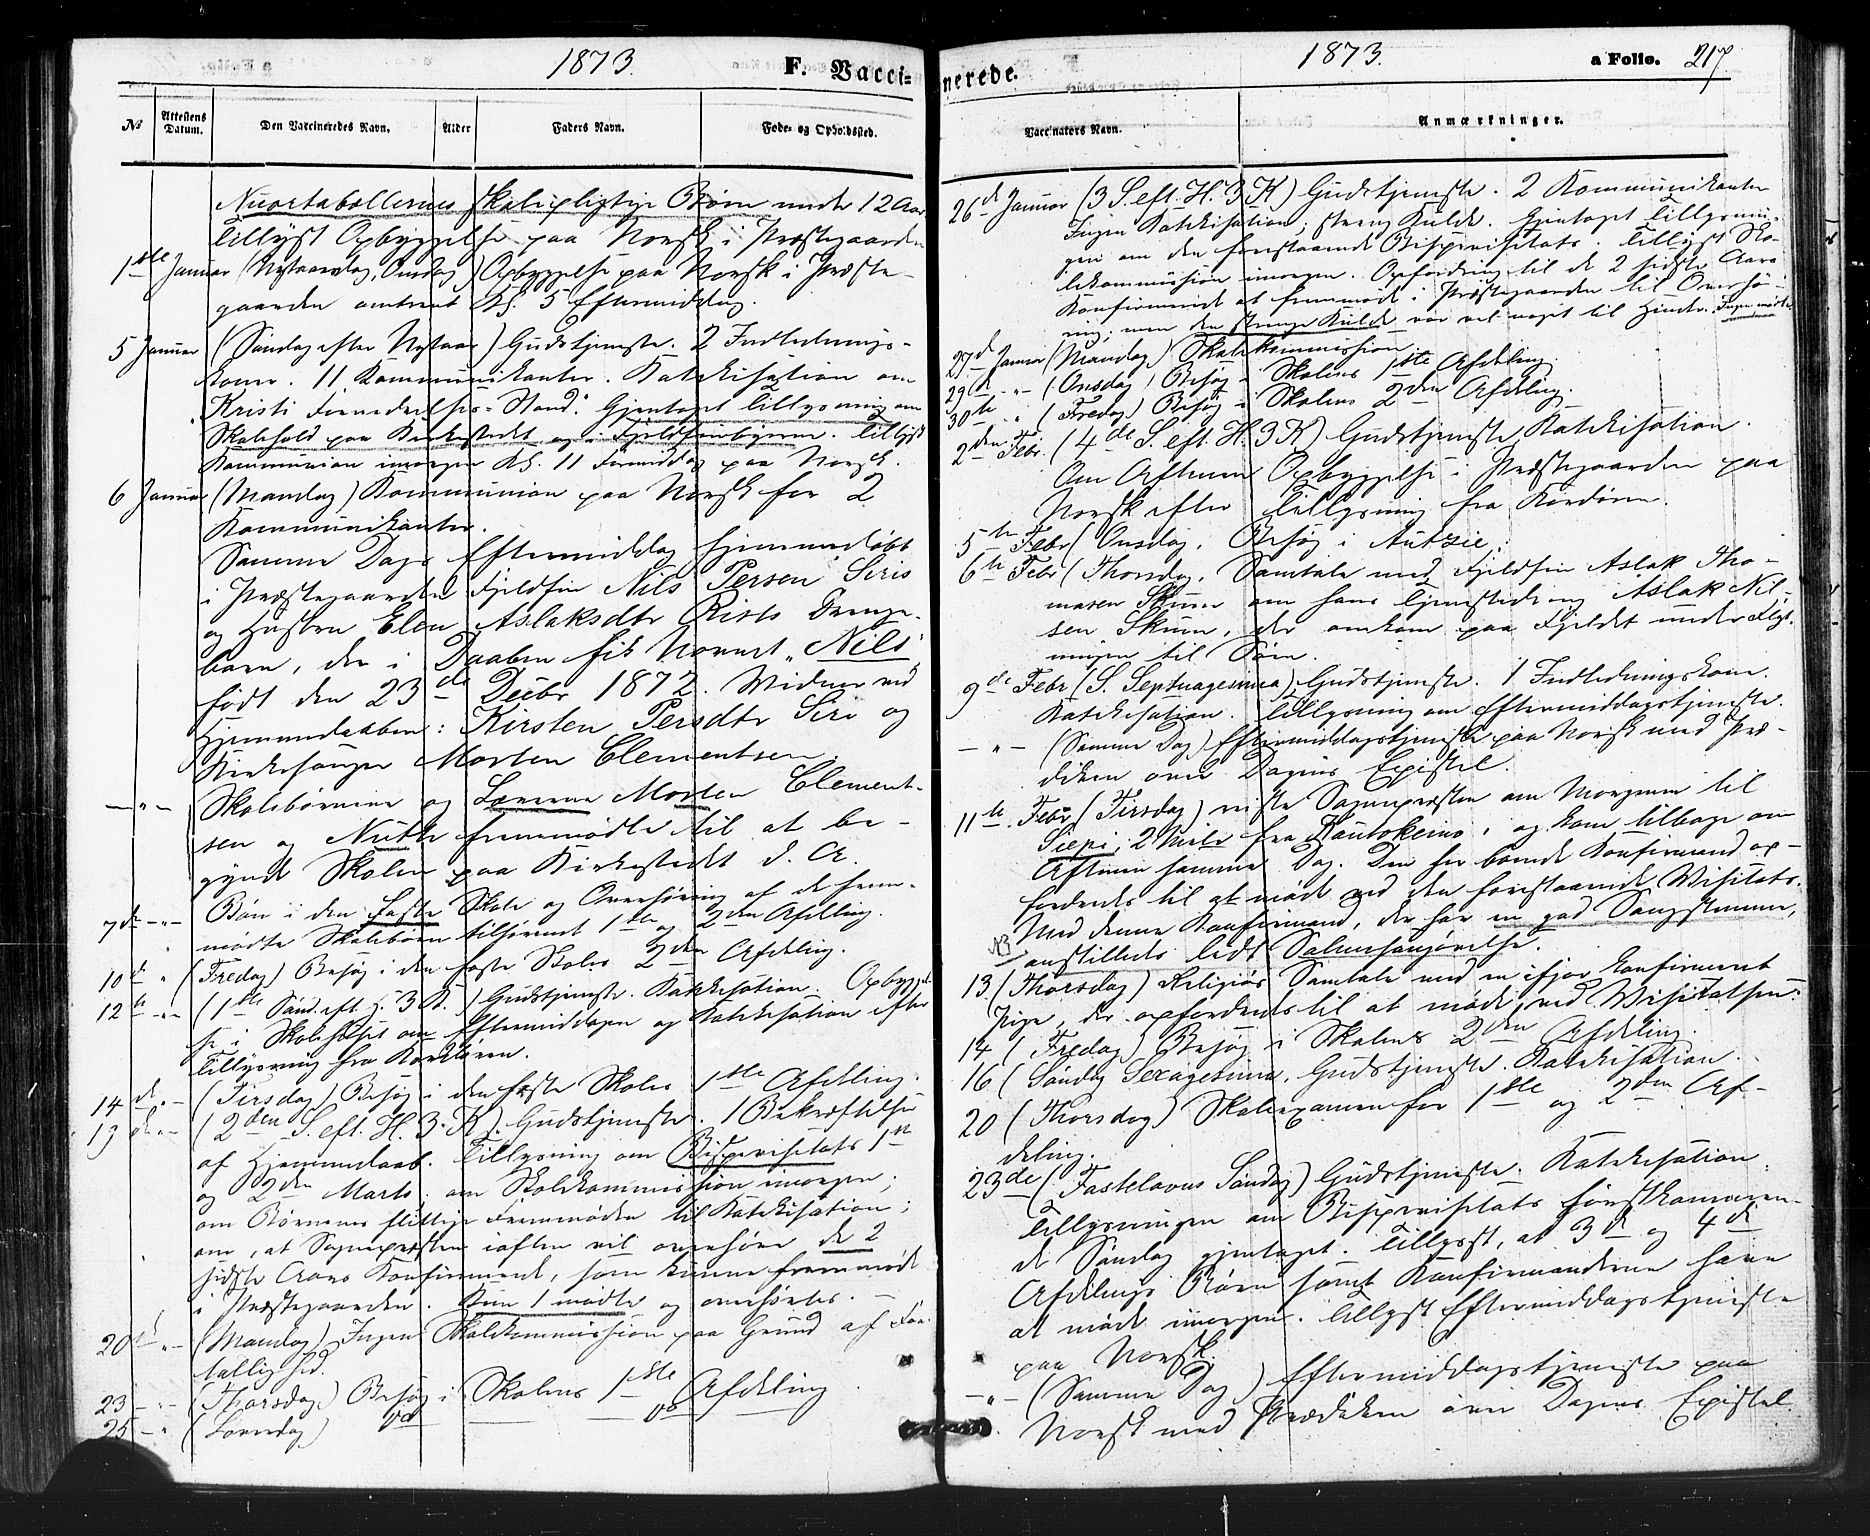 1873.
F. Vacci=
№
Attestens Datum.
Den Vaccineredes Navn.
Alder
Faders Navn.
Føde- og Opholdssted.
Nuortabotternes skolepligtige Børn under 12 Aar
Tillyst Opbyggelse paa Norsk i Præstegaarden
1ste Januar (Nytaarsdag, Onsdag) Opbyggelse paa Norsk i Præste-
gaarden omtrent Kl. 5 Eftermiddag.
5 Januar (Søndag efter Nytaar) Gudstjeneste. 2 Indlednings-
koner. 11 Kommunikanter. Katekisation om
"Kristi Fornedrelses-Stand". Gjentaget Tillysning om
Skolehold paa Kirkestedet og i Fjeldfinbyerne. Tillyst
Kommunion imorgen Kl. 11 Formiddag paa Norsk.
6 Januar (Mandag) Kommunion paa Norsk for 2
Kommunikanter.
Samme Dags Eftermiddag hjemmedøbt
i Præstegaarden Fjeldfin Nils Persen Siris
og Hustru Elen Aslaksdtr Rists Drenge-
barn, der i Daaben fik Navnet "Nils"
født den 23de Decbr 1872. Vidner ved
Hjemmedaaben: Kirsten Persdtr Siri og
Kirkesanger Morten Clementsen
— " — Skolebørnene og Lærerne Morten Clement-
sen og Nutte fremmødte til at be-
gynde Skolen paa Kirkestedet d. A.
7de — " — Bøn i den faste Skole og Overhøring af de frem-
mødte Skolebørn tilhørende 1ste og 2den Afdeling.
10de " (Fredag) Besøg i den faste Skoles 2den Afdeling.
12te — " — (1ste Sønd. eft. H. 3 K.) Gudstjeneste. Katekisation. Opbyggel-
se i Skolehuset om Eftermiddagen og Katekisation efter
Tillysning fra Kordøren.
14de " — (Tirsdag) Besøg i den faste Skoles 1ste Afdeling.
19de " — (2den S. eft. H. 3. K.). Gudstjeneste. 1 Bekræftelse
af Hjemmedaab. Tillysning om Bispevisitats 1ste
og 2den Marts; om Skolekommission imorgen;
om Børnenes flittige Fremmøden til Katekisation;
om, at Sognepræsten iaften vil overhøre de 2
sidste Aars Konfirmerede, som kunne fremmøde
i Præstegaarden. Kun 1 mødte og overhørtes. —
20de " — (Mandag) Ingen Skolekommission paa Grund af Faa-
tallighed.
23 — " — (Thorsdag) Besøg i Skolens 1ste Afdeling.
25 — " (Løverdag)
1873.
a Folio. 217
nerede.
Vaccinators Navn.
Anmærkninger.
26de Januar (3 S. eft. H. 3 K) Gudstjeneste. 2 Kommunikanter
Ingen Katekisation; streng Kulde. Gjentaget Tillysnin-
gen om den forestaaende Bispevisitats. Tillyst Sko-
lekommission imorgen. Opfordring til de 2 sidste Aars
Konfirmerede at fremmøde i Præstegaarden til Overhø-
ring; men den strenge Kulde var vel noget til Hinder. Ingen mødte
27de Januar (Mandag) Skolekommission.
29de " — (Onsdag) Besøg i Skolens 1ste Afdeling.
30te " (Fredag) Besøg i Skolens 2den Afdeling.
2den Febr. (4de S. eft. H. 3 K) Gudstjeneste Katekisation.
Om Aftenen Opbyggelse i Præstegaarden paa
Norsk efter Tillysning fra Kordøren.
5te Febr (Onsdag. Besøg i Autzie.
6te Febr (Thorsdag. Samtale med Fjeldfin Aslak Tho-
masen Skum om hans Tjenestedreng Aslak Nil-
sen Skum, der omkom paa Fjeldet under Flyt-
ningen til Søen.
9de Febr (S. Septuagesima) Gudstjeneste. 1 Indledningskone.
Katekisation. Tillysning om Eftermiddagstjeneste.
— " — (Samme Dag) Eftermiddagstjeneste paa Norsk med Præ-
diken over Dagens Epistel.
11te Febr (Tirsdag) reiste Sognepræsten om Morgenen til
Siepi, 2 Mile fra Kautokeino, og kom tilbage om
Aftenen samme Dag. Den her boende Konfirmand op-
fordredes til at møde ved den forestaaende Visitats.
NB Med denne Konfirmand, der har en god Sangstemme,
anstilledes lidt Salmesangøvelse.
13 (Thorsdag) Religiøs Samtale med en ifjor konfirmeret
Pige, der opfordredes til at møde ved Visitatsen.
14 (Fredag) Besøg i Skolens 2den Afdeling.
16 (Søndag Sexagesima. Gudstjeneste. Katekisation.
20 (Thorsdag) Skoleexamen for 1ste og 2den Af-
deling.
23de (Fastelavns Søndag) Gudstjeneste. Katekisation.
Tillysningen om Bispevisitats førstkommen-
de Søndag gjentaget. Tillyst, at 3de og 4de
Afdelings Børn samt Konfirmanderne have
at møde imorgen. Tillyst Eftermiddagstjeneste
paa Norsk.
— " — (Samme Dag) Eftermiddagstjeneste paa
Norsk med Prædiken over Dagens Epistel